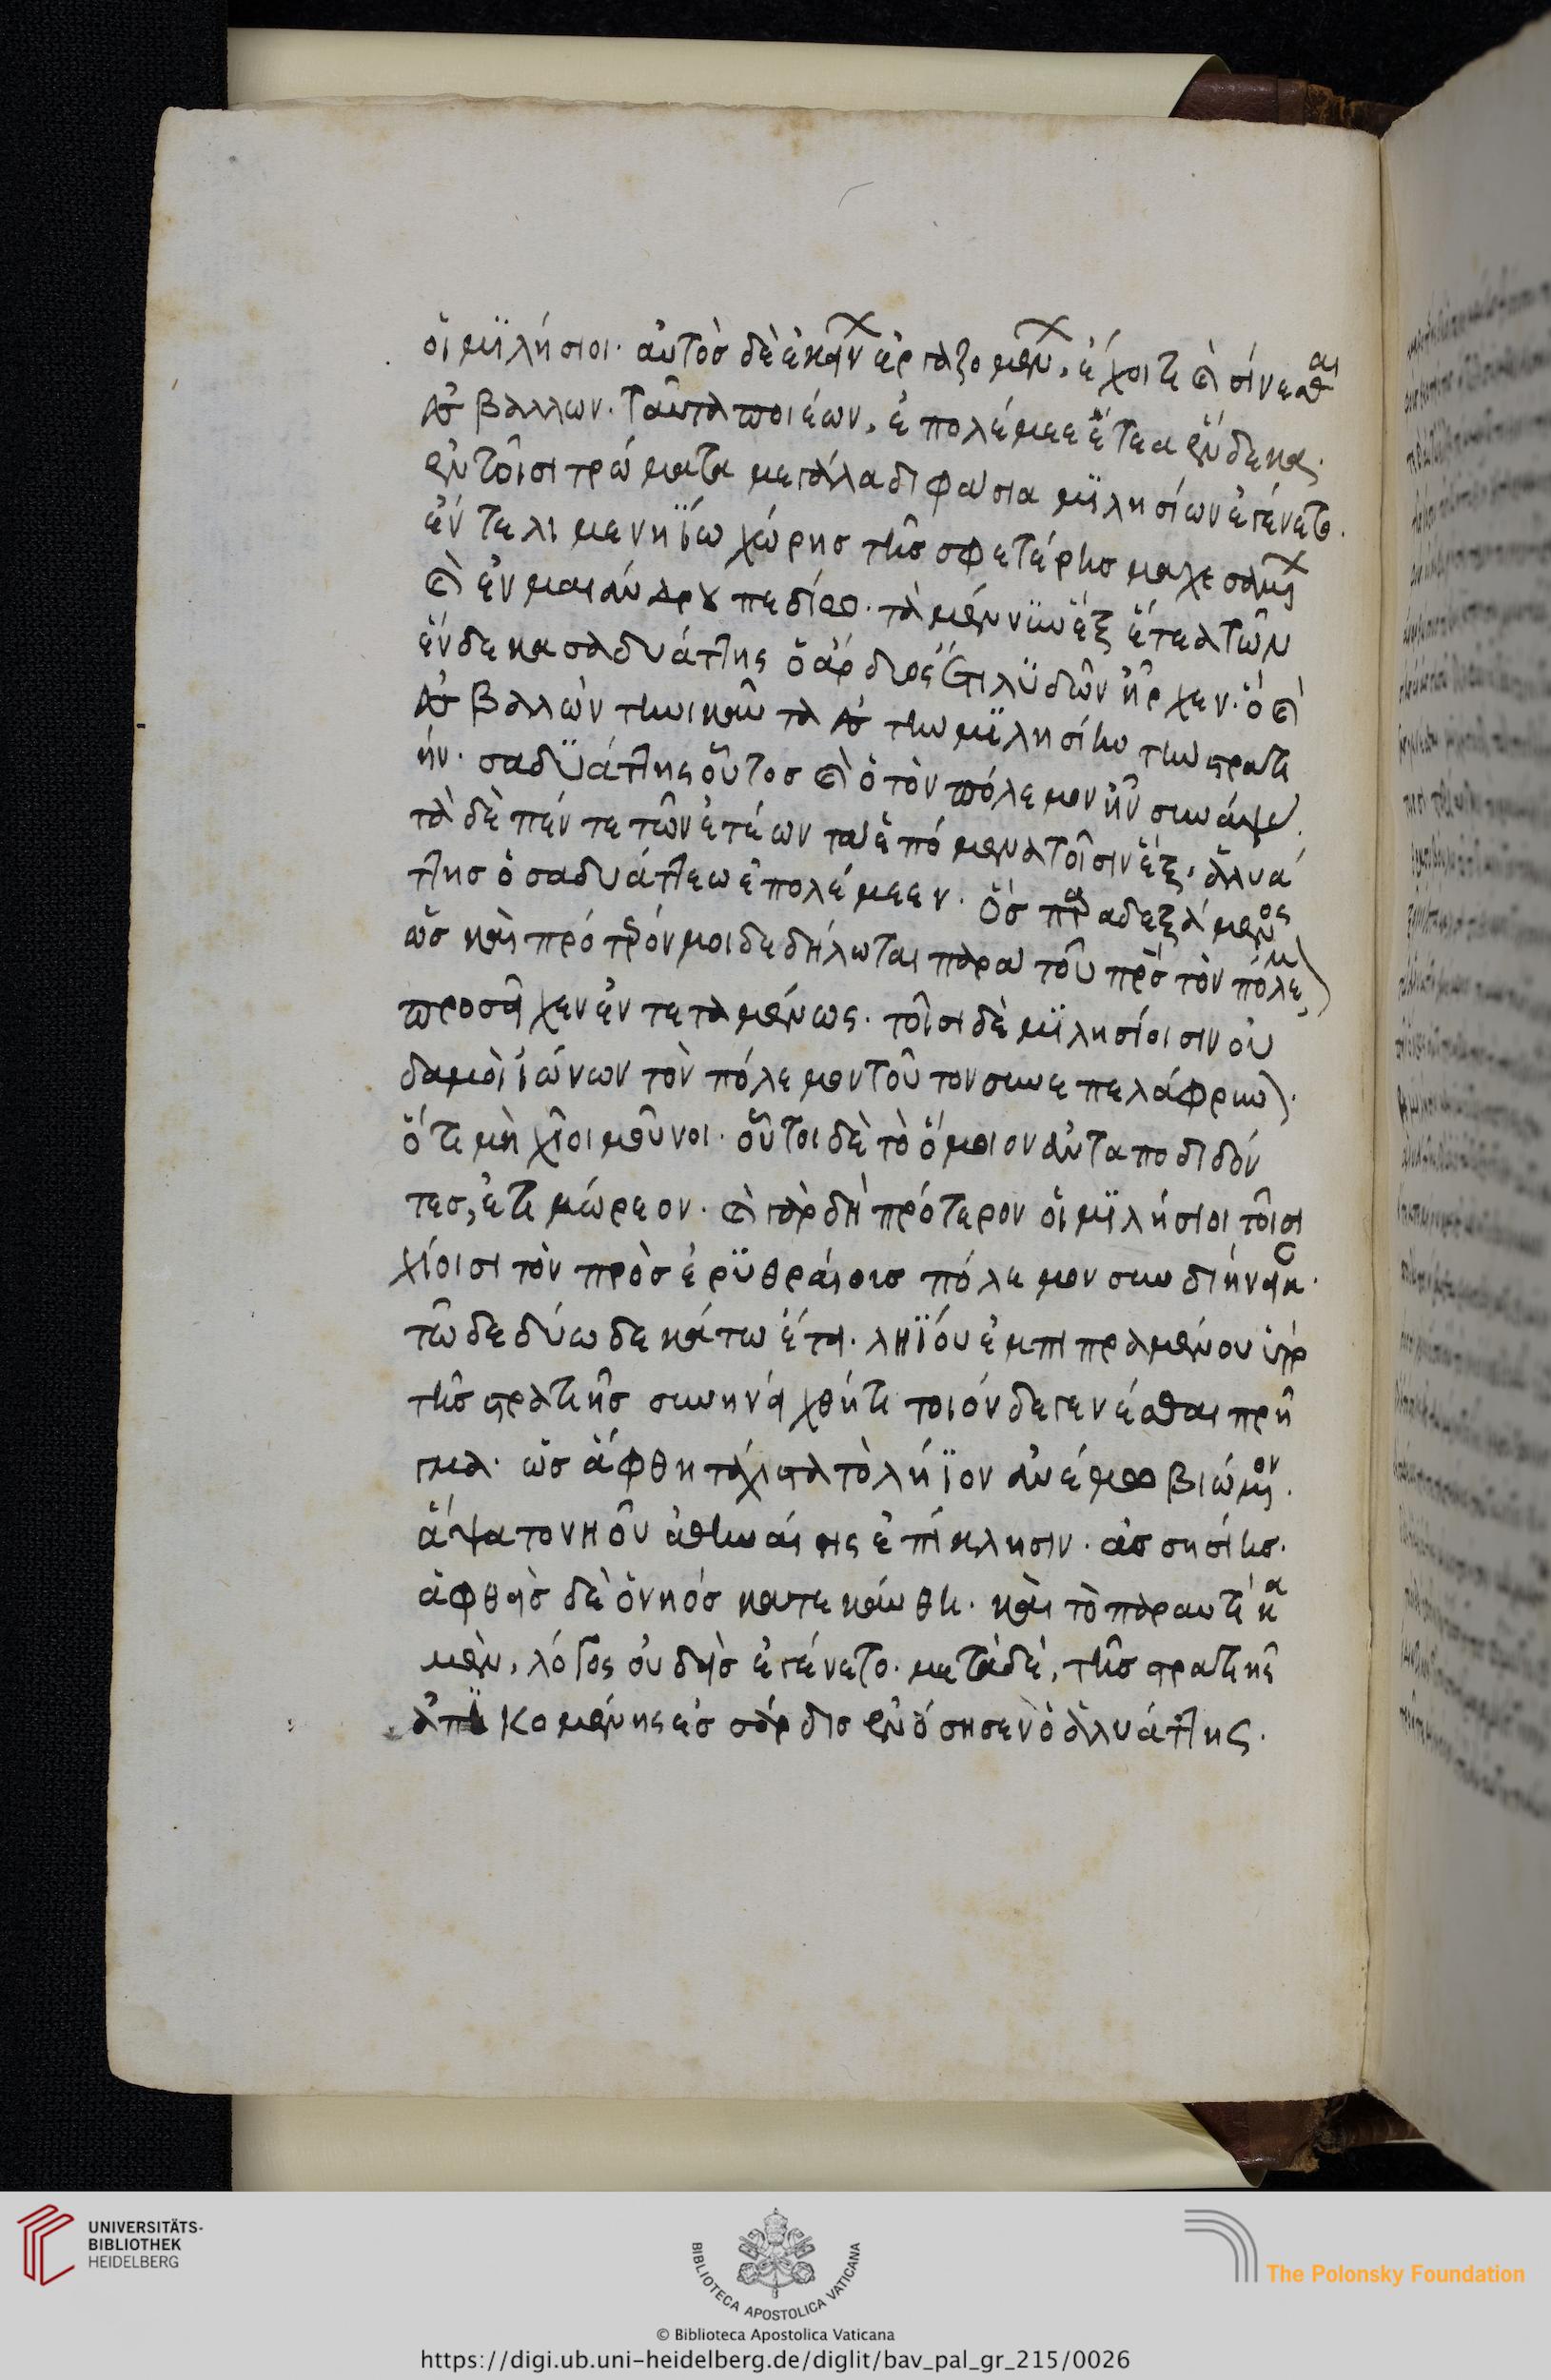 οἱ μϊλήσιοι· αὐτὸσ δὲ ἐκείνων ἐργαζομένων, ἔχοι τι καὶ σίνεσθαι
ἐσβάλλων. ταῦτα ποιέων, ἐπολέμεε ἔτεα ἕνδεκα·
ἐν τοῖσι τρώματα μεγάλα διφάσια μϊλησίων ἐγένετο·
ἔν τε λιμενηΐω χώρησ τῆσ σφετέρησ μαχεσαμένων
καὶ ἐν μαιάνδρου πεδίωι. τὰ μέν νϋν ἓξ ἔτεα τῶν
ἕνδεκα σαδυάττης ὁ ἄρδυος ἔτι λϋδῶν ἦρχεν· ὁ καὶ
ἐσβαλλὼν τηνικαῦτα ἐσ τὴν μϊλησίην τὴν στρατι
ήν. σαδϋάττης οὗτοσ καὶ ὁ τὸν πόλεμον ἦν συνάψας.
τὰ δὲ πέντε τῶν ἐτέων τὰ ἑπόμενα τοῖσιν ἓξ, ἀλυά
ττησ ὁ σαδυάττεω ἐπολέμεεν. ὃσ παραδεξάμενος
ὡσ καὶ πρότερόν μοι δεδήλωται παρὰ τοῦ πρσ τὸν πόλεμον
προσεῖχεν ἐντεταμένως. τοῖσι δὲ μϊλησίοισιν οὐ
δαμοὶ ἰώνων τὸν πόλεμον τοῦτον συνεπελάφρυνον·
ὅτι μὴ χῖοι μοῦνοι. οὗτοι δὲ τὸ ὅμοιον ἀνταποδιδόν
τεσ, ἐτιμώρεον. καὶ γὰρ δὴ πρότερον οἱ μϊλήσιοι τοῖσι
χίοισι τὸν πρὸσ ἐρϋθραίοισ πόλεμον συνδιήνεικαν.
τῶ δὲ δυωδεκάτω ἔτει. ληΐου ἐμπιπραμένου ὑπὸ
τῆσ στρατιῆσ συνηνείχθη τι τοιόνδε γενέσθαι πρῆ
γμα. ὡσ ἅφθη τάχιστα τὸ λήϊον ἀνέμωι βιώμενον.
ἅψατο νηοῦ ἀθηναίης ἐπίκλησιν. ἀσσησίησ.
ἁφθεὶσ δὲ ὁ νηόσ κατεκαύθη. καὶ τὸ παραυτίκα
μὲν, λόγος οὐδεὶσ ἐγένετο. μετὰ δὲ, τῆσ στρατιῆς
ἀπϊκομένης ἐσ σάρδισ ἐνόσησεν ὁ ἀλυάττης.
UNIVERSITÄTS-
BIBLIOTHEK
HEIDELBERG
BIBLIOTECA APOSTOLICA VATICANA
The Polonsky Foundation
© Biblioteca Apostolica Vaticana
https://digi.ub.uni-heidelberg.de/diglit/bav_pal_gr_215/0026